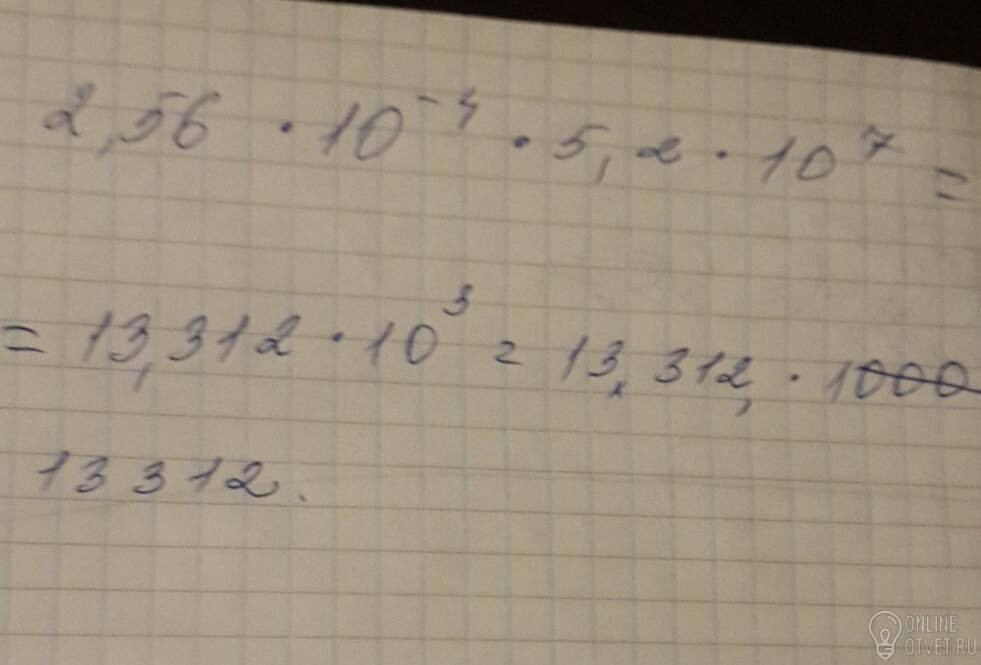 2,56 · 10⁻⁴ · 5,2 · 10⁷ =
= 13,312 · 10³ = 13,312, · 1000
13 312.
ONLINE
OTVET.RU